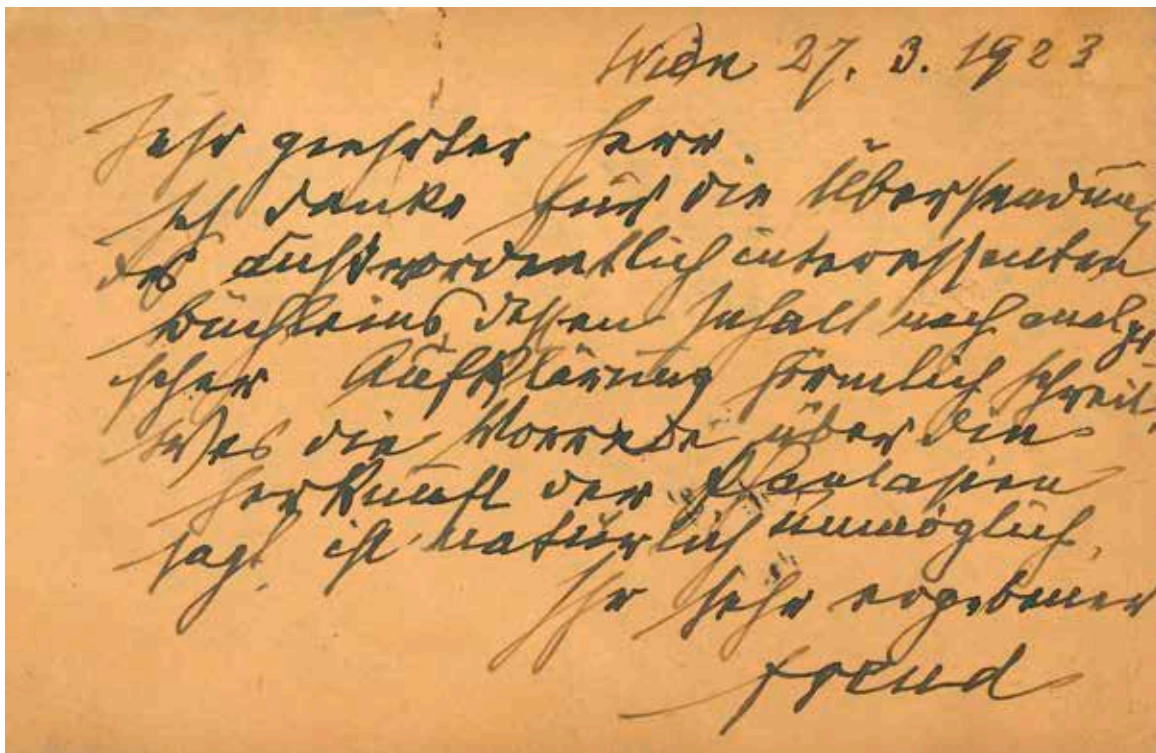 Wien 27. 3. 1923
Sehr geehrter Herr
Ich danke für die Übersendung
des außerordentlich interessanten
Büchleins, dessen Inhalt nach analyti
scher Aufklärung förmlich schreit.
Was die Vorrede über die
Herkunft der Phantasien
sagt, ist natürlich unmöglich.
Ihr sehr ergebener
Freud